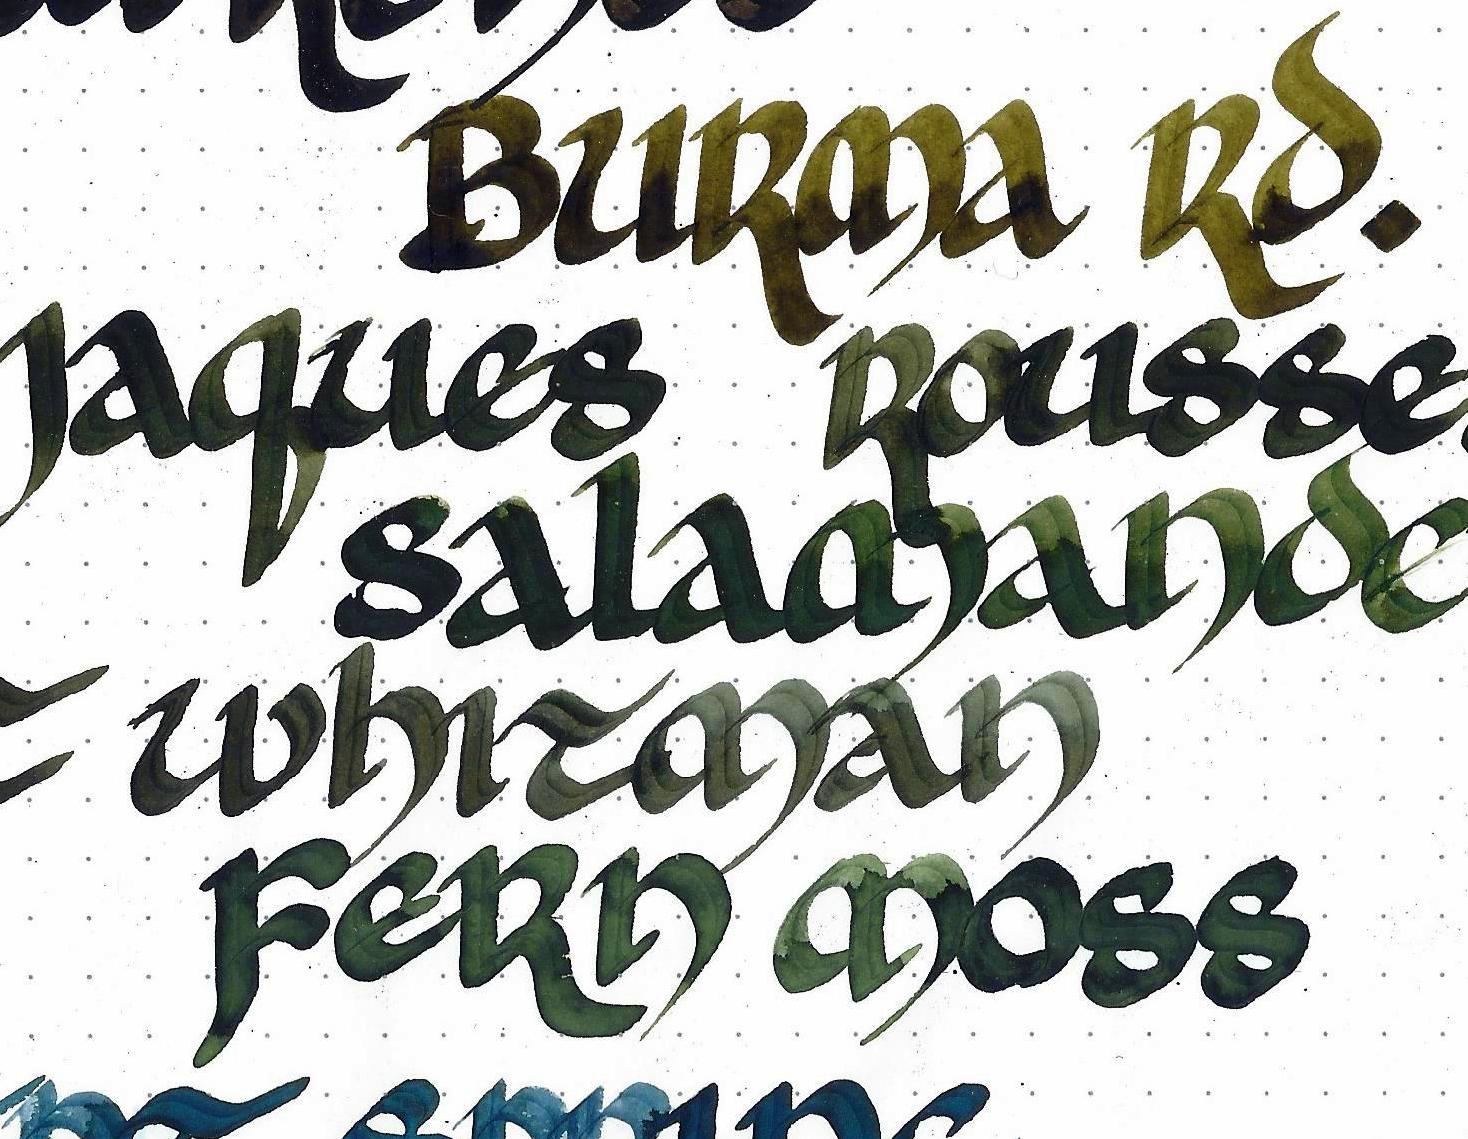 Burma Rd.
Jaques Rousse
Salamande
Whitman
Fern Moss
Spring